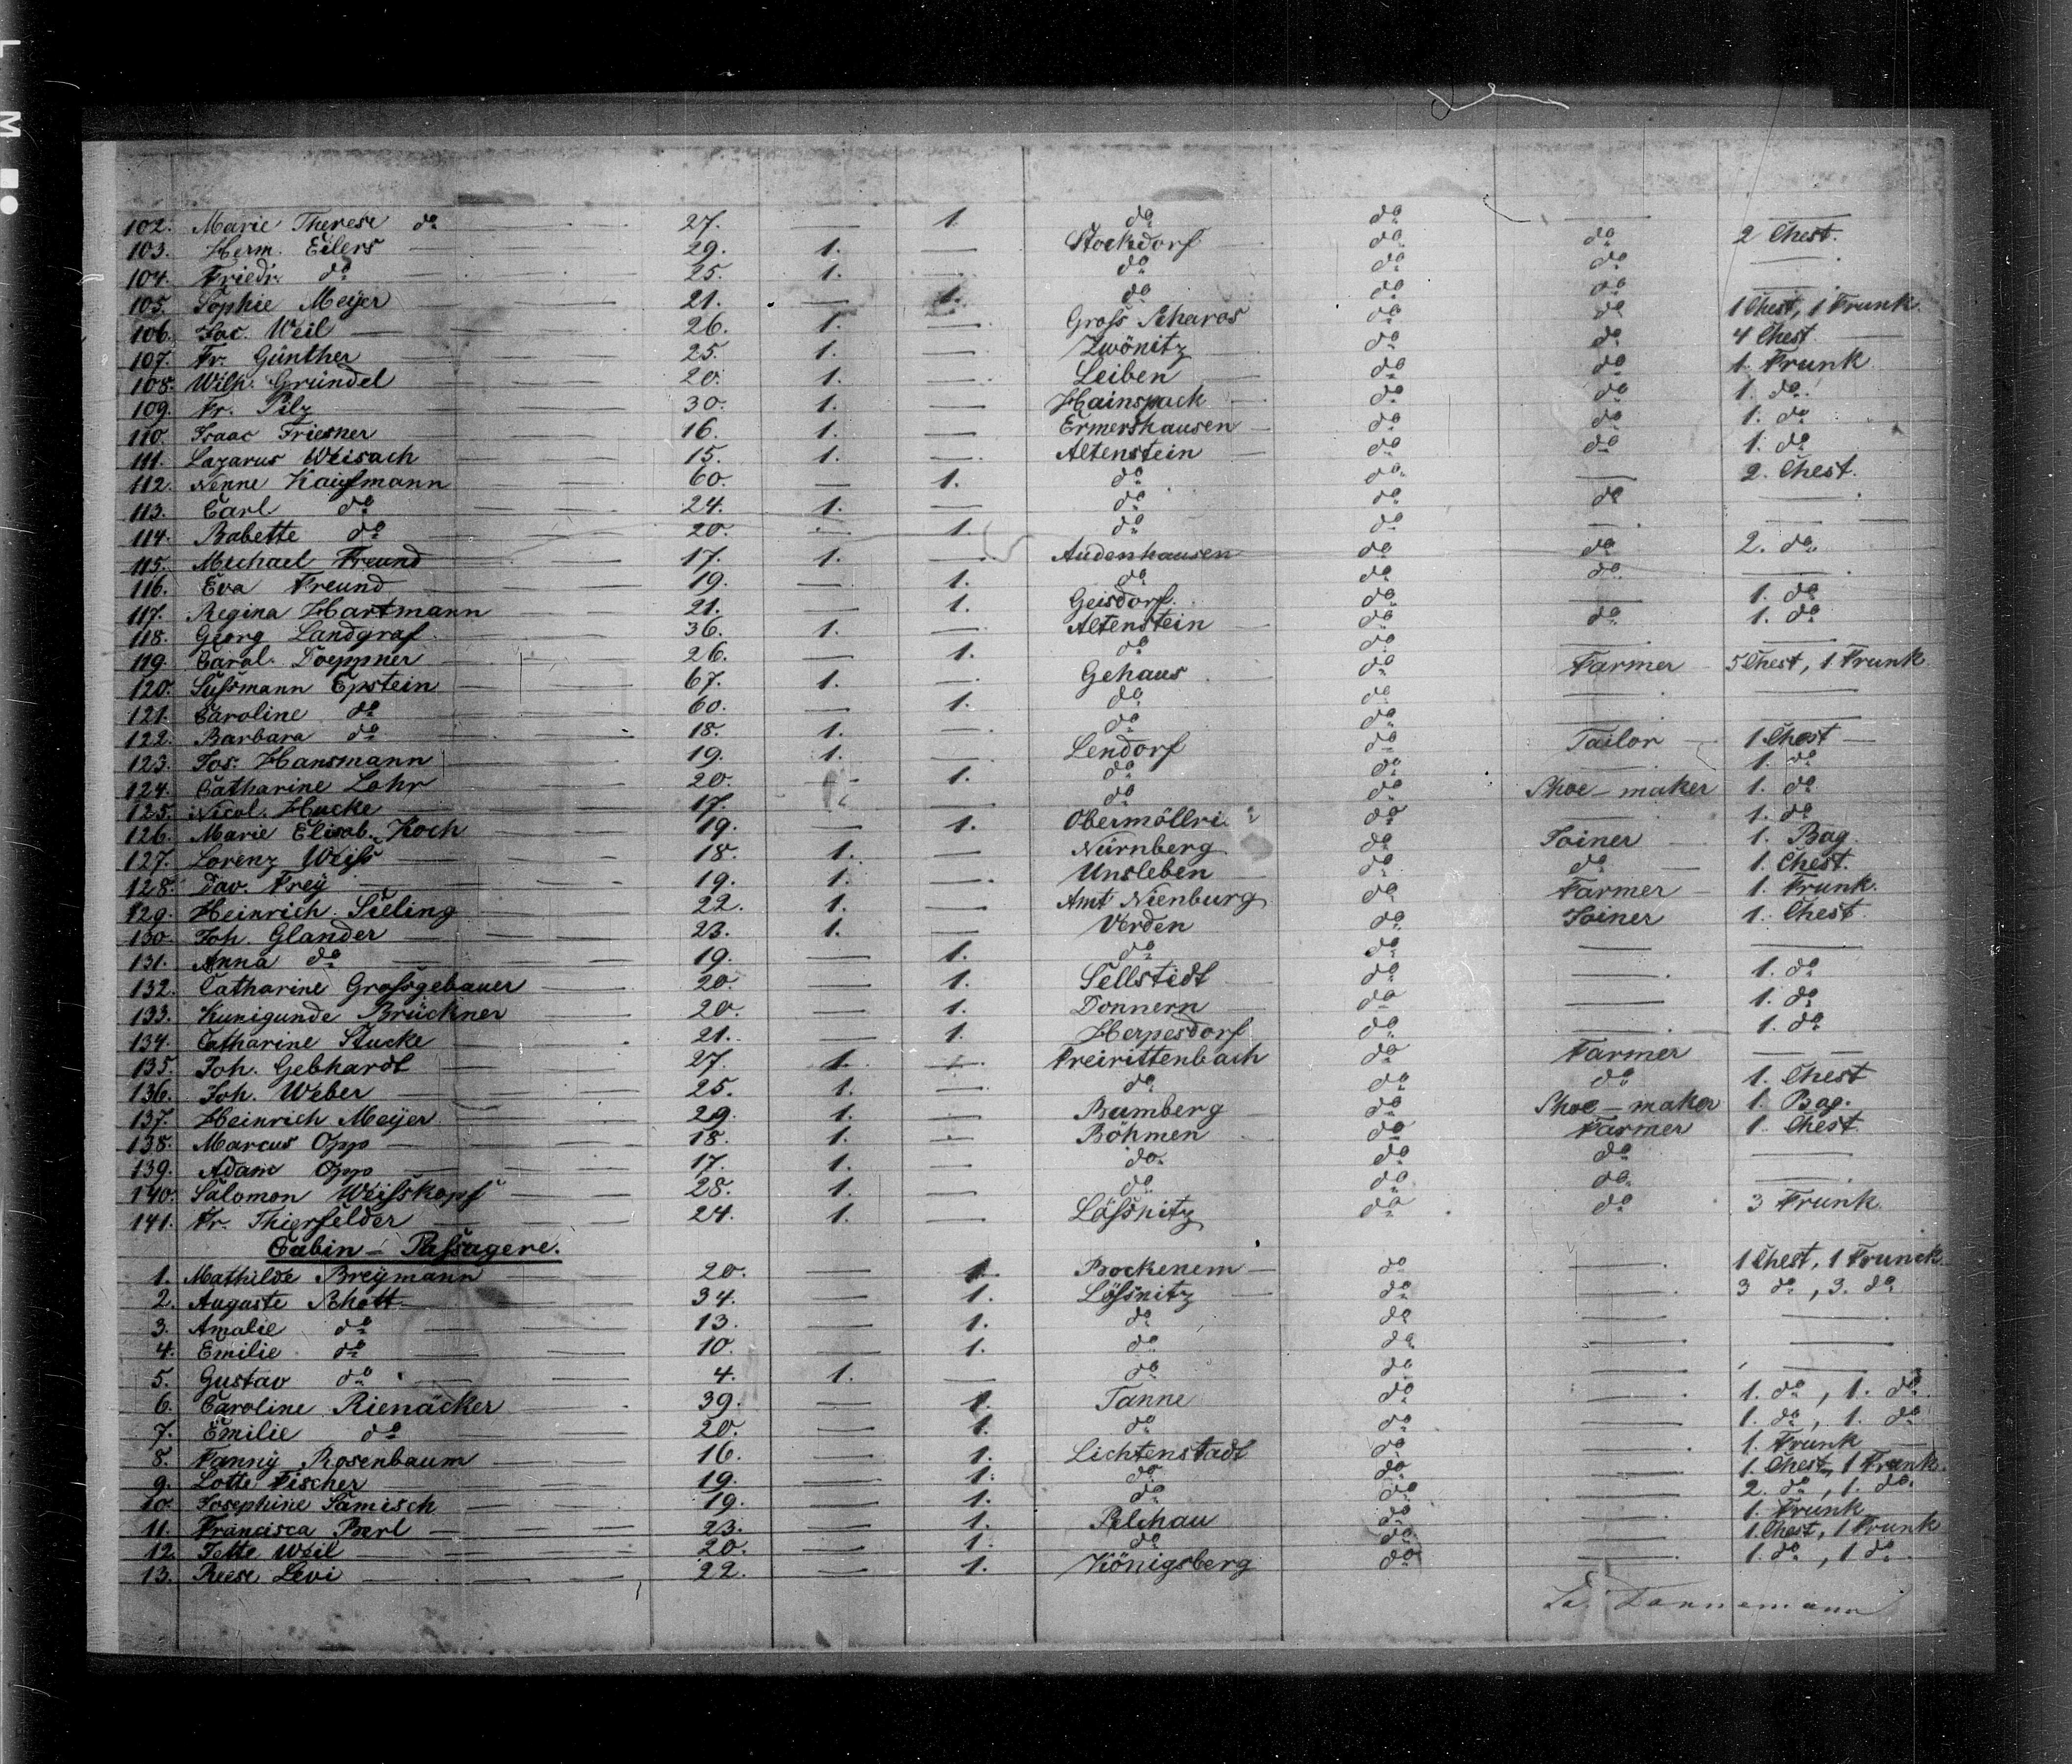 102. Marie Therese do 27. 1. do do
103. Herm. Eilers 29. 1. Stockdorf do do 2 Chest.
104. Friedr. do 25. 1. do do do
105. Sophie Meÿer 21. 1. do do do
106. Jac. Weil 26. 1. Gross Scharos do do 1 Chest, 1 Trunk
107. Fr. Günther 25. 1. Zwönitz do do 4 Chest
108. Wilh. Gründel 20. 1. Leiben do do 1. Trunk
109. Fr. Pilz 30. 1. Hainspach do do 1. do
110. Isaac Friesner 16. 1. Ermershausen do do 1. do
111. Lazarus Weisach 15. 1. Altenstein do do 1. do
112. Nenne Kaufmann 60. 1. do do 2. Chest.
113. Carl do 24. 1. do do do
114. Babette do 20. 1. do do
115. Michael Freund 17. 1. Audenhausen do do 2. do
116. Eva Freund 19. 1. do do do
117. Regina Hartmann 21. 1. Geisdorf do 1. do
118. Georg Landgraf 36. 1. Altenstein do do 1. do
119. Carol. Doeppner 26. 1. do do
120. Süssmann Epstein 67. 1. Gehaus do Farmer 5 Chest, 1 Trunk
121. Caroline do 60. 1. do do
122. Barbara do 18. 1. do do
123. Jos. Hansmann 19. 1. Lendorf do Tailor 1 Chest
124. Catharine Lohr 20. 1. do do 1. do
125. Nicol. Hucke 17. do do Shoe-maker 1. do
126. Marie Elisab. Koch 19. 1. Obermöllri do 1. do
127. Lorenz Weiss 18. 1. Nürnberg do Joiner 1. Bag
128. Dav. Freÿ 19. 1. Unsleben do do 1. Chest.
129. Heinrich Sieling 22. 1. Amt Nienburg do Farmer 1. Trunk.
130. Joh. Glander 23. 1. Verden do Joiner 1. Chest
131. Anna do 19. 1. do do
132. Catharine Grossgebauer 20. 1. Sellstedt do 1. do
133. Kunigunde Brückner 20. 1. Donnern do 1. do
134. Catharine Stucke 21. 1. Herpesdorf do 1. do
135. Joh. Gebhardt 27. 1. Freirittenbach do Farmer
136. Joh. Weber 25. 1. do do do 1. Chest
137. Heinrich Meÿer 29. 1. Bamberg do Shoe-maker 1. Bag.
138. Marcus Opp 18. 1. Böhmen do Farmer 1. Chest
139. Adam Opp 17. 1. do do do
140. Salomon Weisskopf 28. 1. do do do
141. Fr. Thierfelder 24. 1. Lössnitz do do 3 Trunk
Cabin-Passagere.
1. Mathilde Breÿmann 20. 1. Bockenem do 1 Chest, 1 Trunck
2. Auguste Schott 34. 1. Lössnitz do 3 do, 3. do
3. Amalie do 13. 1. do do
4. Emilie do 10. 1. do do
5. Gustav do 4. 1. do do
6. Caroline Rienäcker 39. 1. Tanne do 1. do, 1. do
7. Emilie do 20. 1. do do 1. do, 1. do
8. Fannÿ Rosenbaum 16. 1. Lichtenstadt do 1. Trunk
9. Lotte Fischer 19. 1. do do 1. Chest, 1 Trunk.
10. Josephine Samisch 19. 1. do do 2. do, 1. do
11. Francisca Berl 23. 1. Pelchau do 1. Trunk
12. Jette Weil 20. 1. do do 1 Chest, 1 Trunk
13. Reese Levi 22. 1. Königsberg do 1. do, 1 do
Dannemann